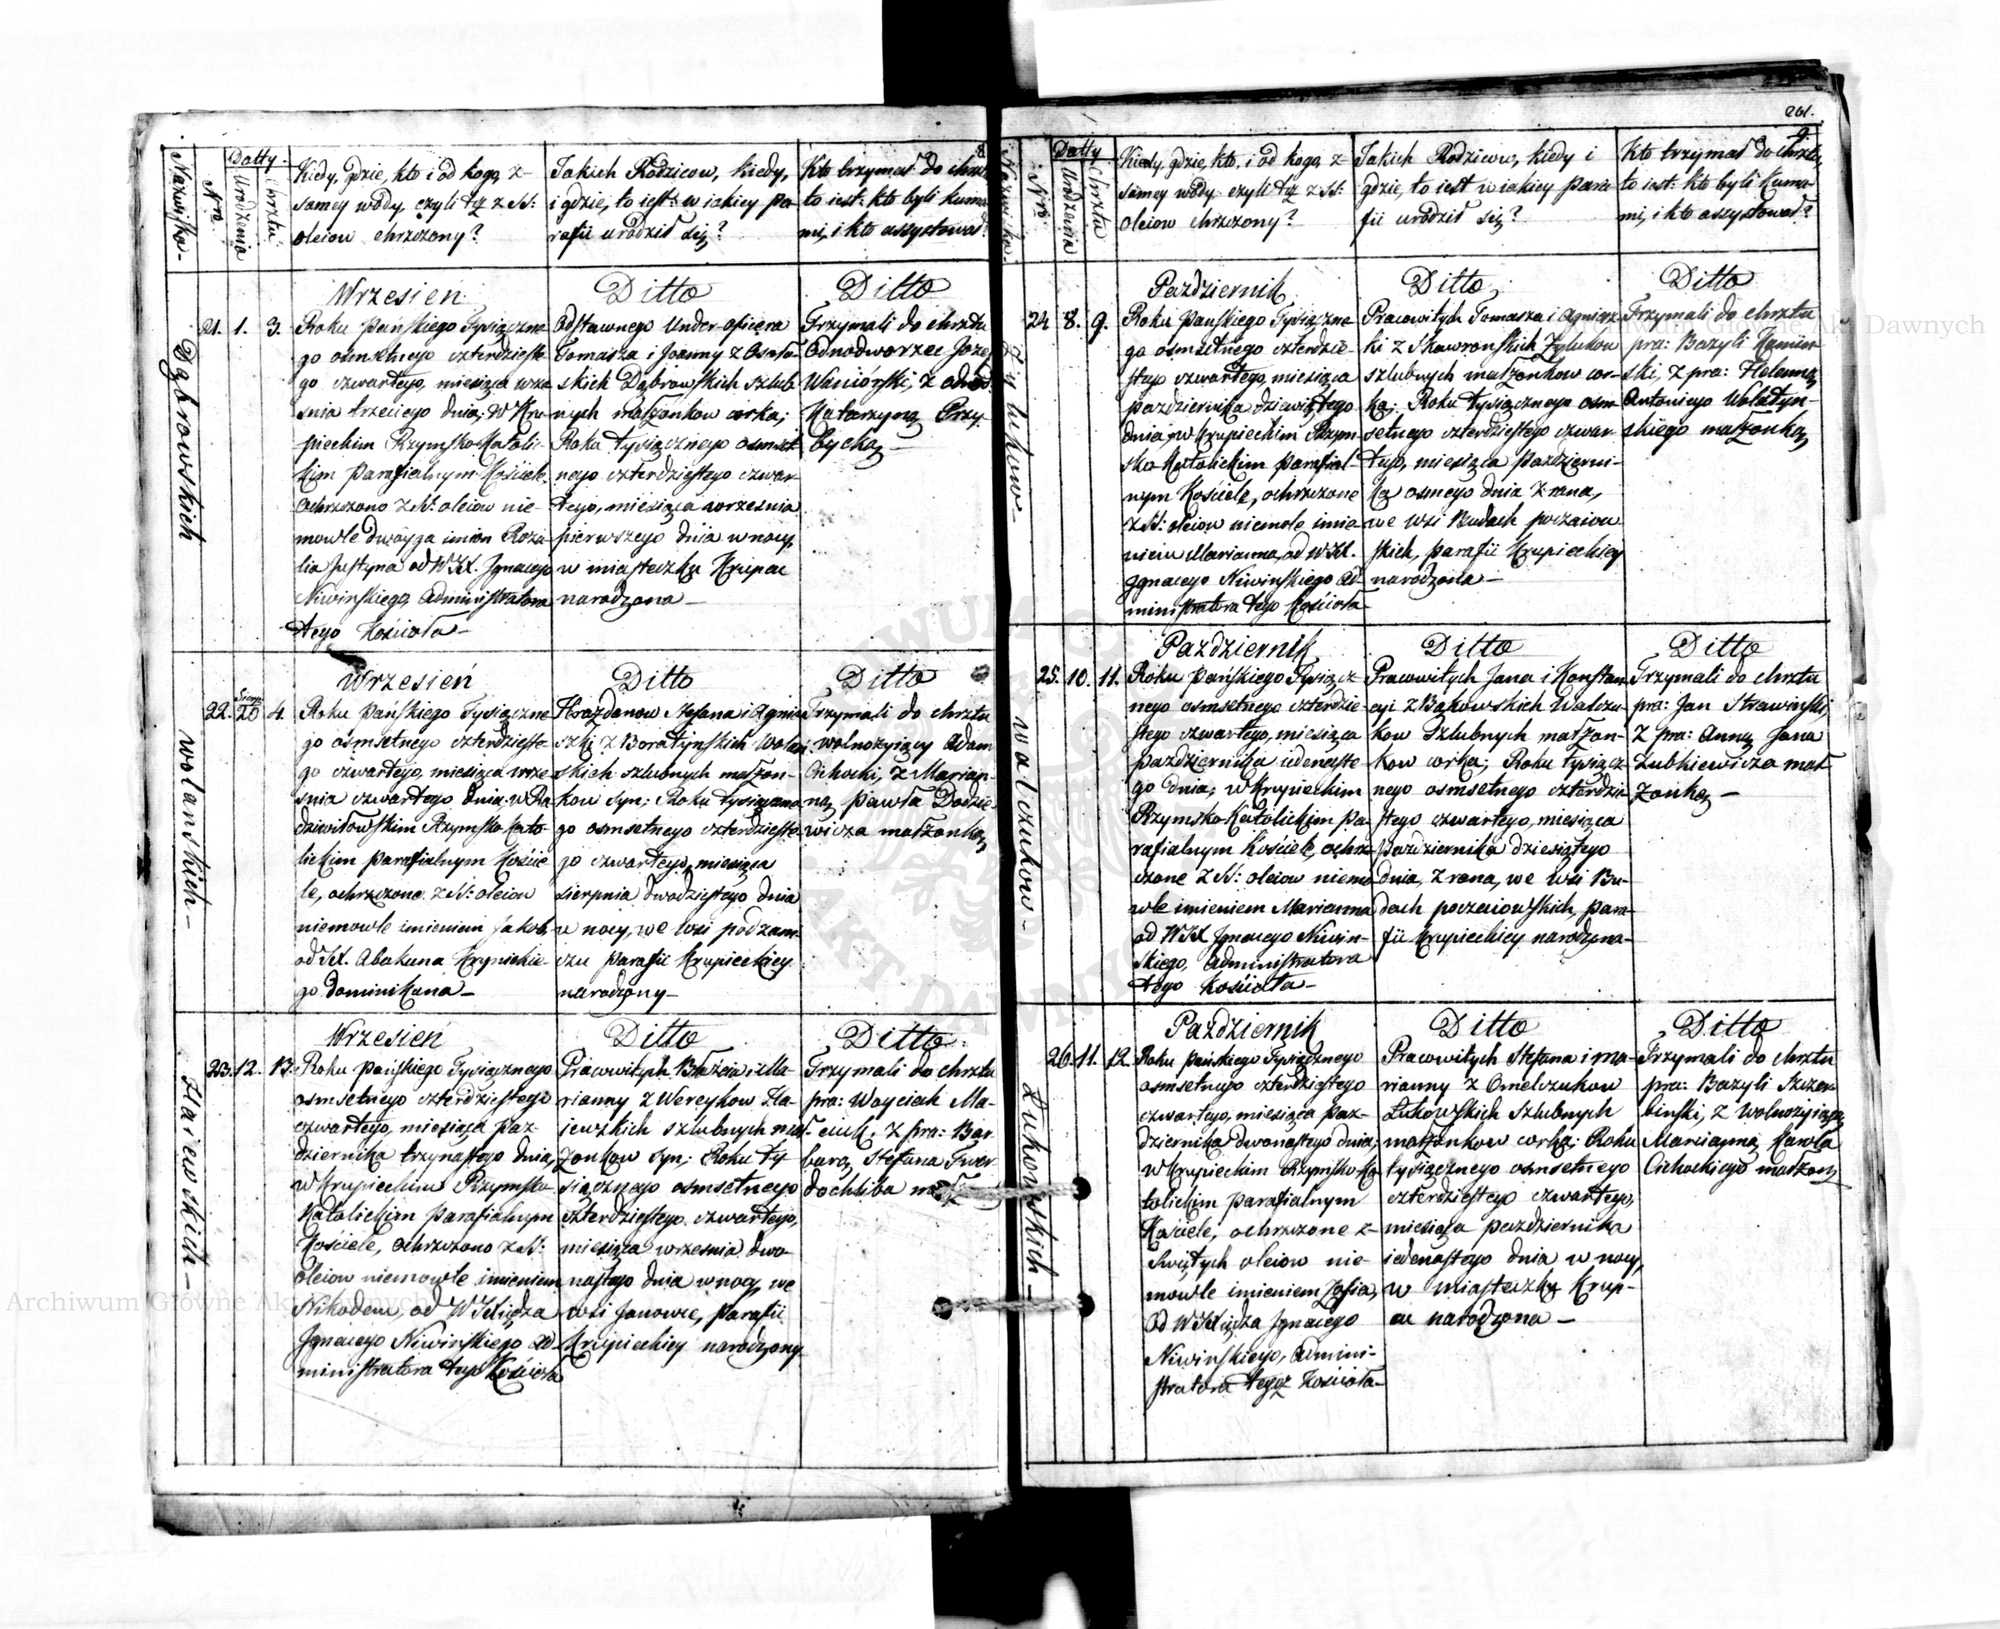 261.
8.
9.
Nazwisko
Nro.
Datty
Urodzenia
Chrztu
Kiedy, gdzie, kto i od kogo, z
samey wody, czyli też z SS:
oleiow chrzczony?
Jakich Rodzicow, kiedy,
i gdzie, to iest: w iakiey pa-
rafii urodził się?
Kto trzymał do chrztu
to iest: kto byli kuma-
mi, i kto assystował?
Dąbrowskich
21. 1. 3.
Wrzesień
Roku Pańskiego Tysiączne
go osmsetnego czterdzieste
go czwartego, miesiąca wrze
snia trzeciego dnia; w Kru-
pieckim Rzymsko-Katolic-
kim Parafialnym Kosciele,
ochrzczono z SS: oleiow nie-
mowle dwoyga imion Roza-
lia Justyna od WJX. Jgnacego
Niwinskiego Administratora
tego Kościoła-
Ditto
Odstawnego Under-oficera
Tomasza i Joanny z
skich Dąbrowskich szlub-
nych małżonkow corka;
Roku tysiącznego osmset
nego czterdziestego czwar-
tego, miesiąca wrzesnia
pierwszego dnia w nocy,
w miasteczku Krupcu
narodzona-
Ditto
Trzymali do chrztu
Odnodworzec Joze
z
Katarzyną Przy-
bycką-
Wolanskich-
22. Sierp. 20 4.
Wrzesień
Roku Pańskiego Tysiączne
go osmsetnego czterdzieste
go czwartego, miesiąca wrze
snia czwartego dnia. w Ra
dziwiłowskim Rzymsko-Kato
lickim Parafialnym Koscie
le, ochrzczono z SS: oleiow
niemowle imieniem Jakob,
od JX. Abakuna Krynickie
go Dominikana-
Ditto
i Agnie
szki z Boratynskich Wolan
skich szlubnych małżon-
kow syn; Roku tysiączne
go osmsetnego czterdzieste
go czwartego, miesiąca
sierpnia dwudziestego dnia
w nocy, we wsi Podzam-
czu Parafii Krupieckiey
narodzony-
Ditto
Trzymali do chrztu
wolnożyiący Adam
Cichocki, z Marian-
ną Pawła Dodzie-
wicza małżonką
Hajewskich-
23. 12. 13.
Wrzesień
Roku Pańskiego Tysiącznego
osmsetnego czterdziestego
czwartego, miesiąca paz-
dziernika trzynastego dnia,
w Krupieckim Rzymsko
Katolickim Parafialnym
Kościele, ochrzczono z SS:
oleiow niemowle imieniem
Nikodem, od WJXiędza
Jgnacego Niwinskiego ad-
ministratora tego Kościoła
Ditto
Pracowitych Błażeia i Ma-
rianny z Wereykow Ha-
jewskich szlubnych mał-
żonkow syn; Roku ty-
siącznego osmsetnego
czterdziestego czwartego,
miesiąca wrzesnia dwu-
nastego dnia w nocy, we
wsi Janowce, Parafii
Krupieckiey narodzony-
Ditto
Trzymali do chrztu
pra: Woyciech Ma-
z pra: Bar-
barą Stefana Twer
dochliba
Nazwisko
Nro
Datty
Urodzenia
Chrztu
Kiedy, gdzie, kto, i od kogo, z
samey wody czyli też z SS:
oleiow chrzczony?
Jakich Rodzicow, kiedy i
gdzie, to iest w iakiey para
fii urodził się?
Kto trzymał do chrztu,
to iest: kto byli kuma-
mi, i kto assystował?
Żylukow-
24 8. 9.
Pazdziernik
Roku Pańskiego Tysiączne
go osmsetnego czterdzie-
stego czwartego, miesiąca
pazdziernika dziewiątego
dnia; w Krupieckim Rzym-
sko-Katolickim Parafial-
nym Kościele, ochrzczone
z SS: oleiow niemole imie
niem Marianna, od WJX.
Jgnacego Niwinskiego Ad-
ministratora tego Kościoła
Ditto
Pracowitych Tomasza i Agniesz
ki z Skawronskich Żylukow
szlubnych małżonkow cor-
ka; Roku tysiącznego osm-
setnego czterdziestego czwar-
tego, miesiąca pazdzierni-
ka osmego dnia z rana,
we wsi Budach poczaiow
skich, Parafii Krupieckiey
narodzona-
Ditto
Trzymali do chrztu
pra: Bazyli Kamin-
ski, z pra: Heleną,
Antoniego Wolodyn-
skiego małżonką,
Walczukow-
25. 10. 11.
Pazdziernik
Roku Pańskiego Tysiącz
nego osmsetnego czterdzie-
stego czwartego, miesiąca
pazdziernika iedenaste
go dnia; w Krupieckim
Rzymsko-Katolickim Pa-
rafialnym Kosciele, ochrz-
czone z SS: oleiow niemo
wle imieniem Marianna
od WJX Jgnacego Niwin-
skiego, Administratora
tego Kościoła-
Ditto
Pracowitych Jana i Konstan-
cyi z Bąkowskich Walczu-
kow szlubnych małżon-
kow corka; Roku tysiącz-
nego osmsetnego czterdzie-
stego czwartego, miesiąca
Pazdziernika dziesiątego
dnia, z rana, we wsi Bu-
dach poczaiowskich, Para-
fii Krupieckiey narodzona-
Ditto
Trzymali do chrztu
pra: Jan Strawinski,
z pra: Anną Jana
Lubkiewicza mał
żonką-
Łukowskich-
26. 11. 12.
Pazdziernik
Roku Pańskiego Tysiącznego
osmsetnego czterdziestego
czwartego, miesiąca paz-
dziernika dwunastego dnia;
w Krupieckim Rzymsko-Ka
tolickim Parafialnym
Kościele, ochrzczone z
Swiętych oleiow nie-
mowle imieniem Zofia,
od WJXiędza Jgnacego
Niwinskiego, Admini-
stratora tegoż Kościoła-
Ditto
Pracowitych Stefana i Ma-
rianny z Omelczukow
Łukowskich szlubnych
małżonkow corka; Roku
tysiącznego osmsetnego
czterdziestego czwartego,
miesiąca pazdziernika
iedenastego dnia w nocy,
w miasteczku Krup-
cu narodzona-
Ditto
Trzymali do chrztu
pra: Bazyli Szczer-
binski, z wolnożyiącą
Marianną Pawła
Cichockiego małżonką
Archiwum Główne Akt Dawnych
Archiwum Główne Akt Dawnych